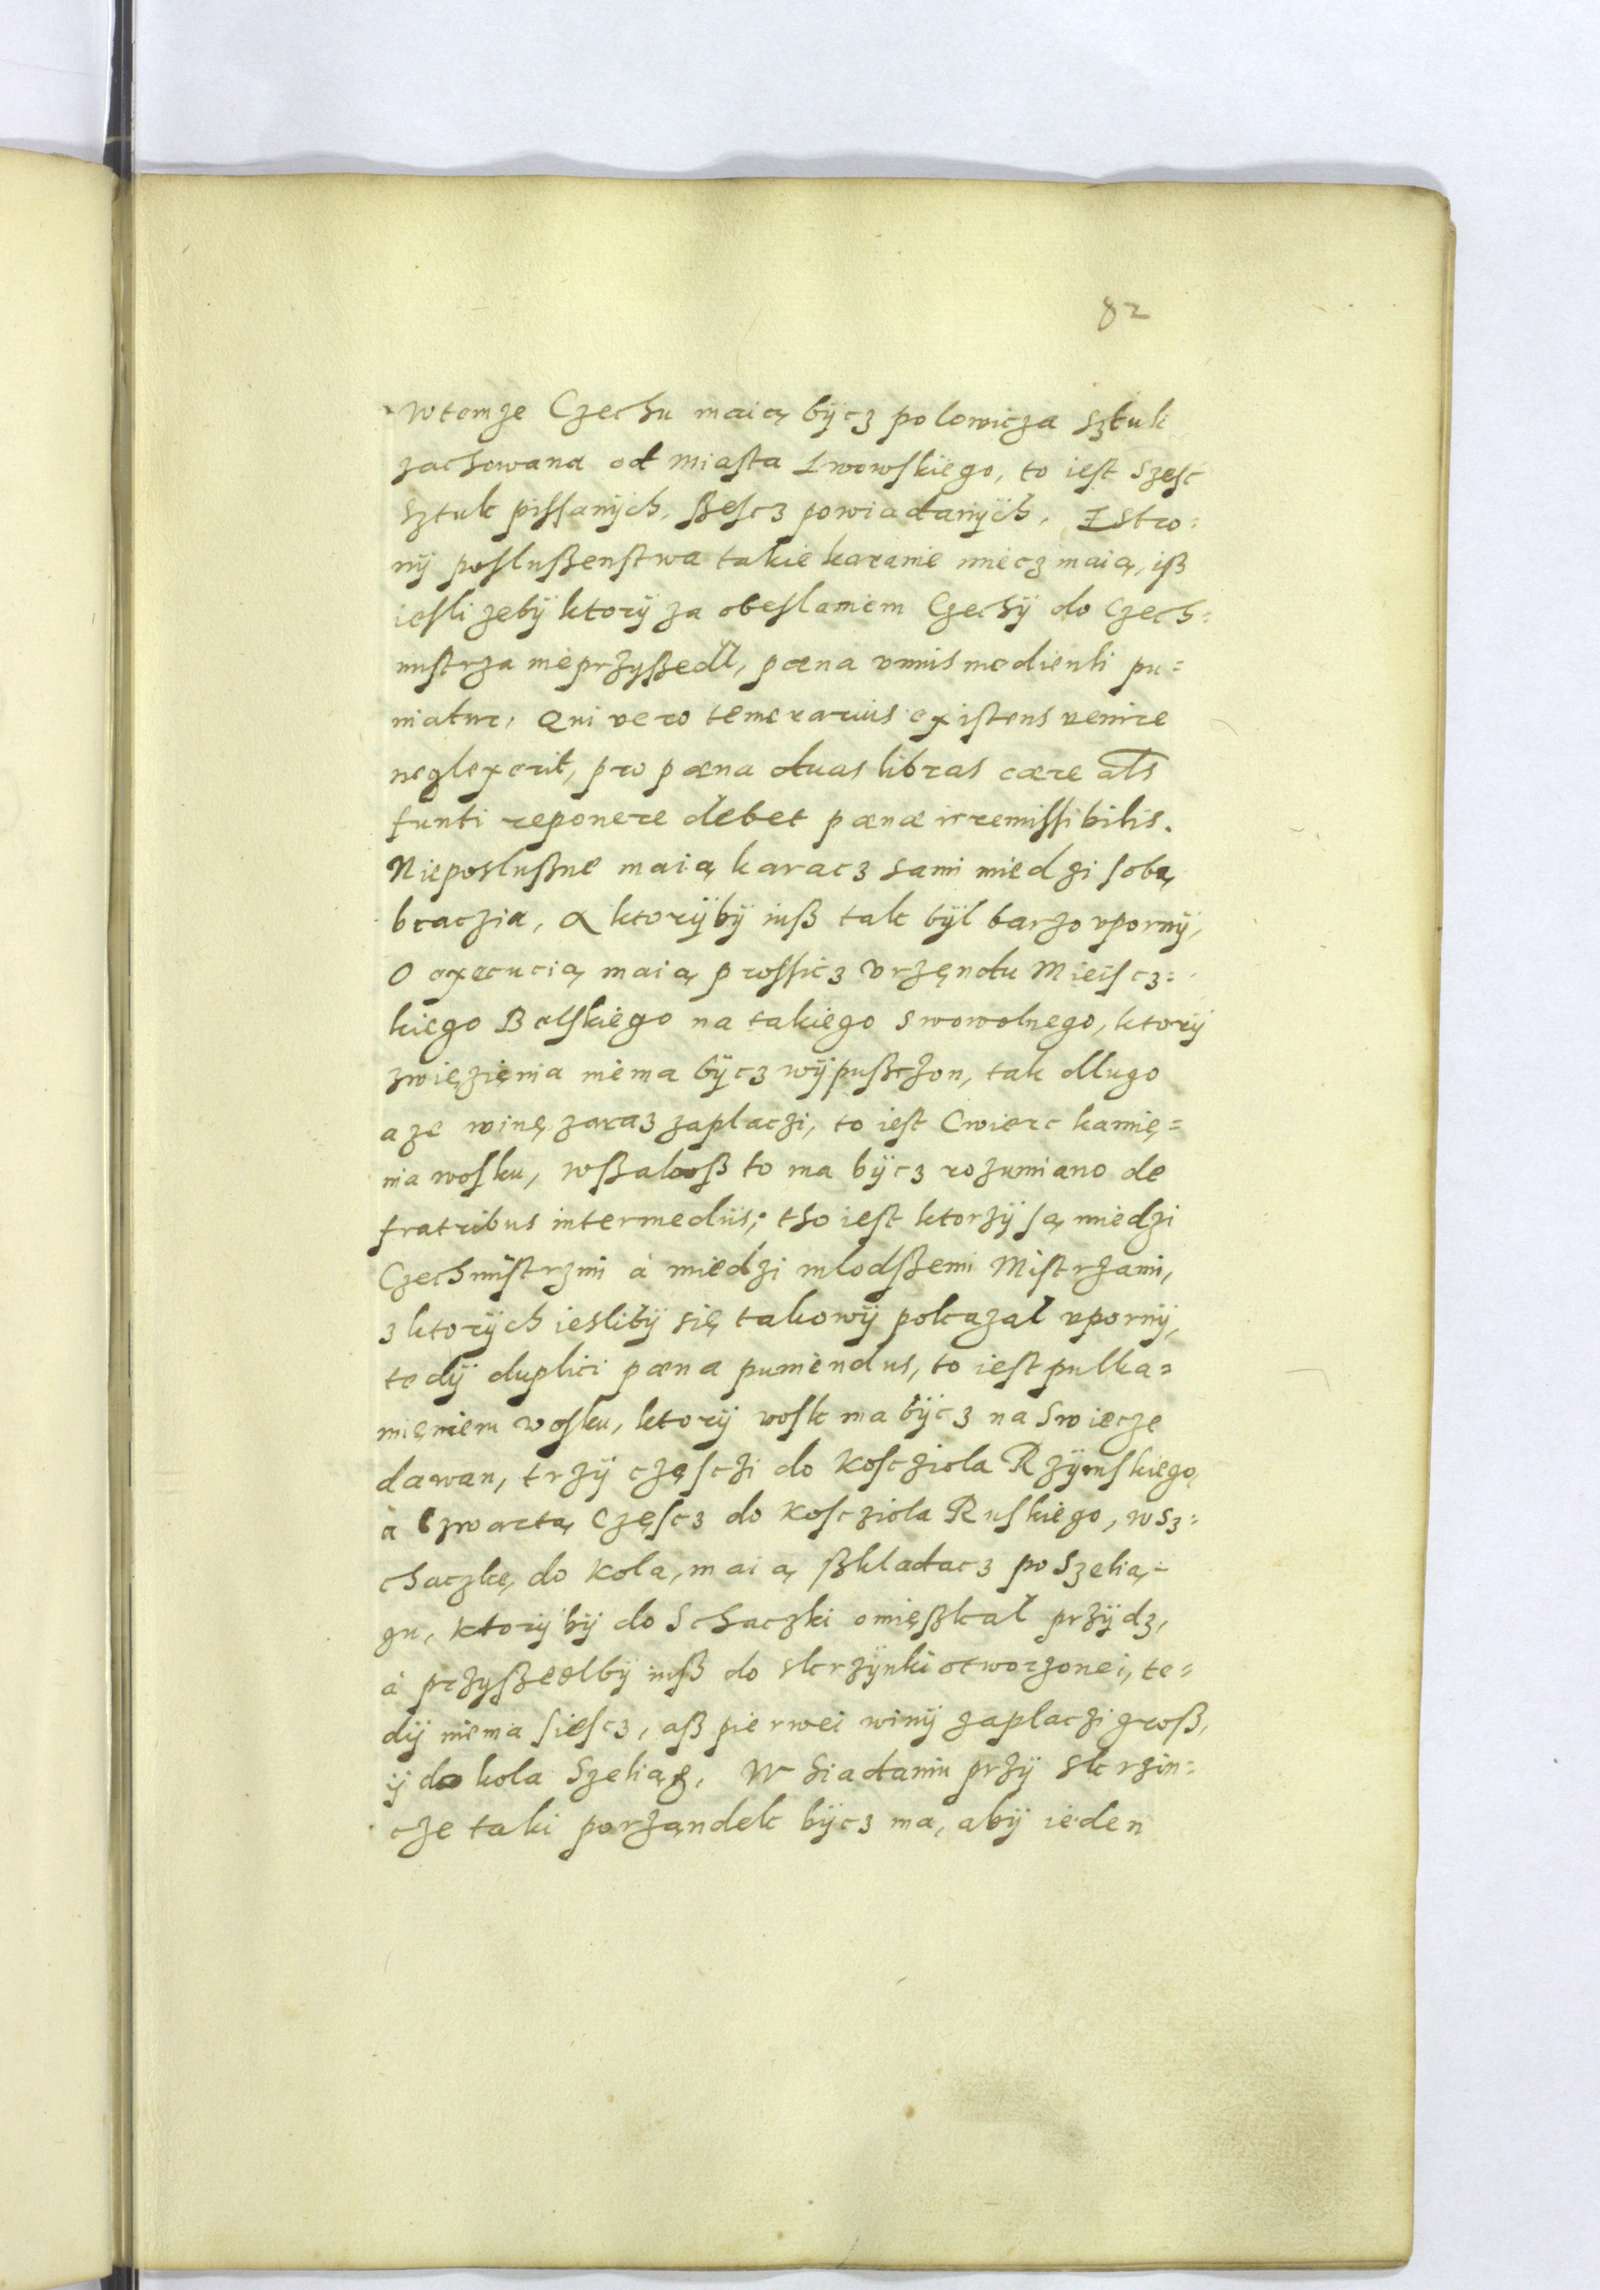 82
Wtemże Czechu maią bÿcz polowicza sztuk
zachowana od miasta Lwowskiego, to iest szesc
sztuk pissanÿch, szescz powiadanÿch. Z stro=
nÿ posluszenstwa takie karanie miecz maią, isz
iesliżebÿ ktorÿ za obeslaniem Czechÿ do Czech=
mistrza nieprzÿszedł, pœna unius mediculi pu=
niatur, Qui vero temerarius existens venire
neglexerit, pro pœna duas libras cære als
funti reponere debet pœnæ irremissibilis.
Nieposluszne maią karacz sami miedzi sobą
braczia, A ktorÿbÿ iusz tak bÿl barzo upornÿ,
O execucią maią prossicz Urzędu Mieiscz=
kiego Belskiego na takiego swowolnego, ktorÿ
zwięzięnia niema bÿcz wÿpuszczon, tak dlugo
aże winę zaraz zaplaczi, to iest Cwierc kamię=
nia wosku, wszakosz to ma bÿcz rozumiano de
fratribus intermediis; tho iest ktorzÿ są miedzi
Czechmistrzmi à miedzi mlodszemi Mistrzami,
z ktorÿch ieslibÿ się takowÿ pokazał upornÿ,
tedÿ duplici pœna puniendus, to iest pulka=
mięniem wosku, ktorÿ wosk ma bÿcz na swiecze
dawan, trzÿ częsczi do Kosczioła Rzÿmskiego,
à Czwartą Częscz do Kosczioła Ruskiego, w sz=
chaczkę, do Kola, maią szkladacz po Szelią=
gu, ktorÿbÿ do Schaczki omięszkał przÿdz,
à przÿszedlbÿ iusz do skrzÿnki otworzonei, te=
dÿ niema siescz, asz pierwei winÿ zaplaczi grosz,
ÿ do kola Szeliąg. W siadaniu przÿ skrzin=
cze taki porżądek bÿcz ma, abÿ ieden